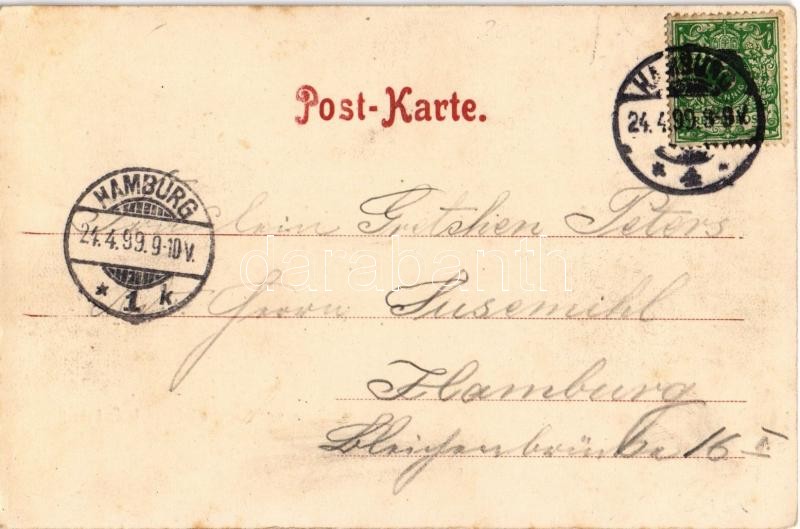 Post-Karte.
HAMBURG
24.4.99.8-9V.
* 4 *
HAMBURG
24.4.99.9-10V.
* 1 k
Fräulein Gretchen Peters
Herrn Susemihl
Hamburg
Bleichenbrücke 16 I
darabanth